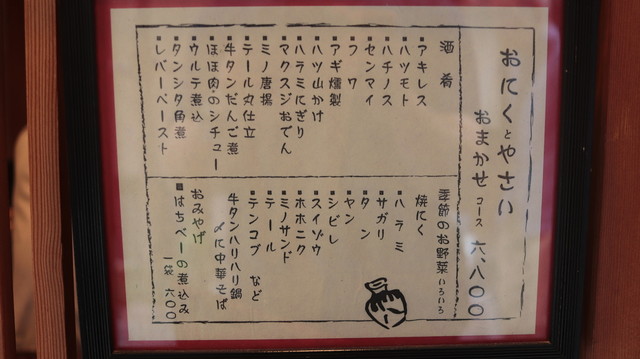 おにくとやさい
おまかせ コース 六、八〇〇
酒肴
▪アキレス
▪ハツモト
▪ハチノス
▪センマイ
▪フワ
▪アギ燻製
▪ハツ山かけ
▪ハラミにぎり
▪マクスジおでん
▪ミノ唐揚
▪テール丸仕立
▪牛タンだんご煮
▪ほほ肉のシチュー
▪ウルテ煮込
▪タンシタ角煮
▪レバーペースト
季節のお野菜いろいろ
焼にく
▪ハラミ
▪サガリ
▪タン
▪ヤン
▪シビレ
▪スイゾウ
▪ホホニク
▪ミノサンド
▪テール
▪テンコブ など
牛タンハリハリ鍋
〆に中華そば
おみやげ
■はちべーの煮込み
一袋 六〇〇